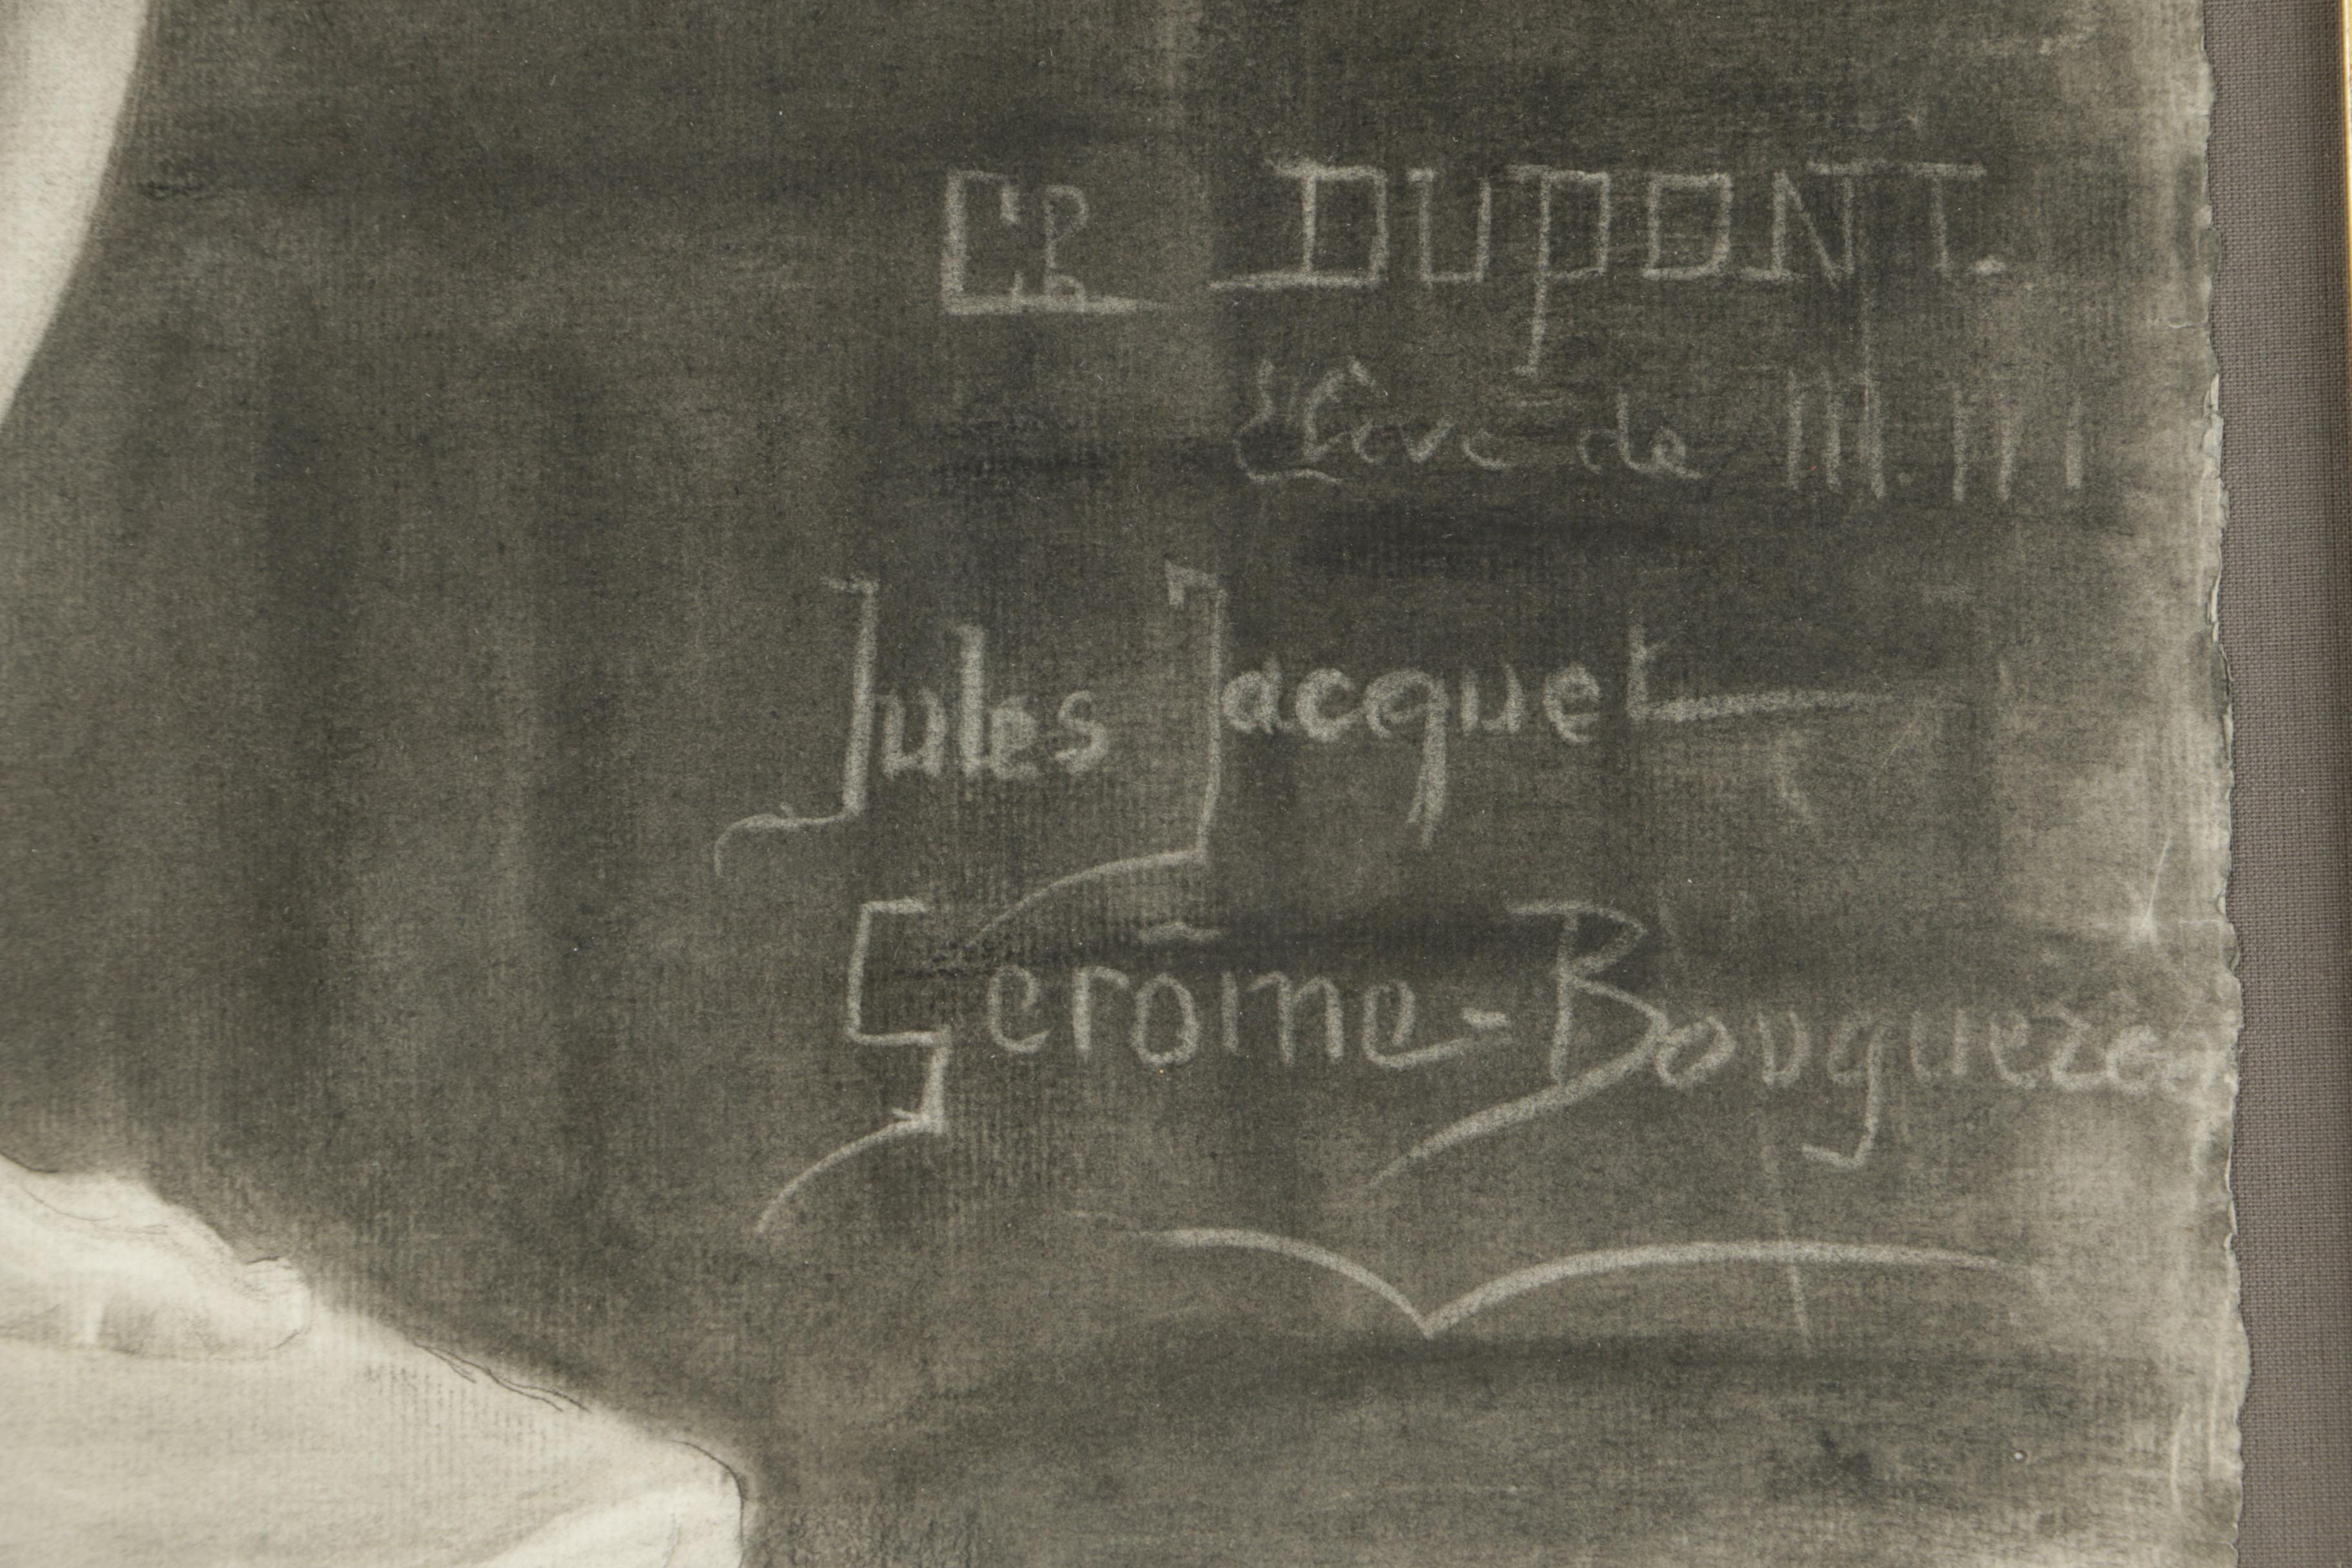 DUPONT.
Elève de M.M
Jules Jacquet
Gerôme-Bouguereau